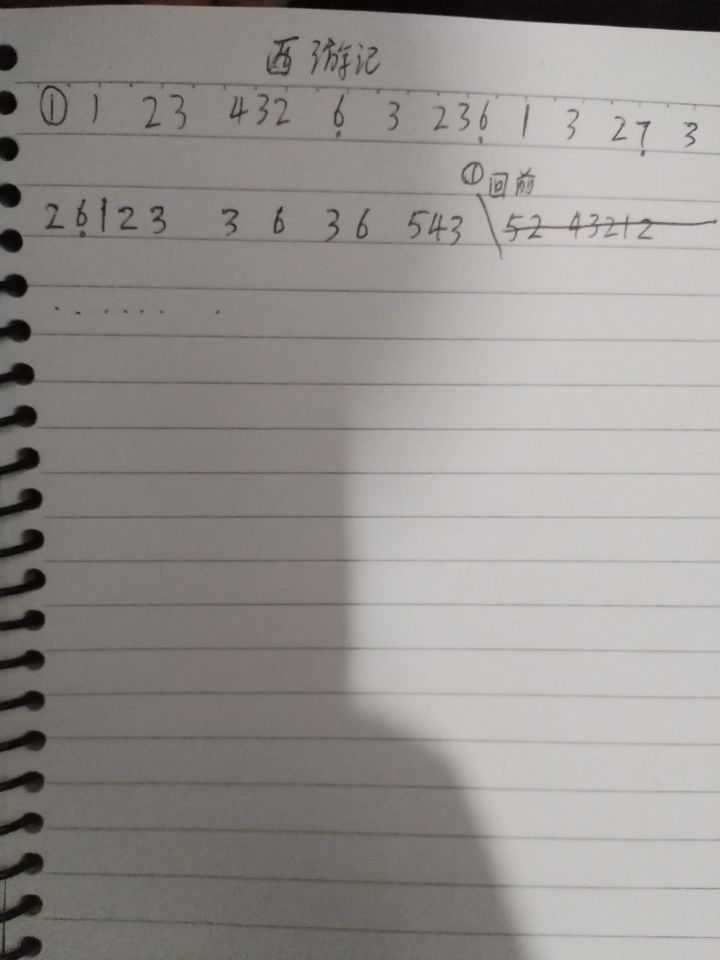 西游记
① 1 23 432 6̣ 3 236̣ 1 3 27̣ 3
①回前
26̣123 3 6 36 543 \ 52 43212
. . . . . . .